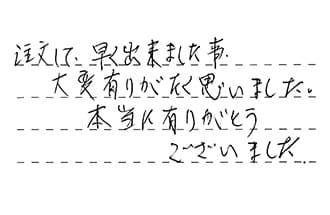 注文して、早く出来ました事.
大変有りがたく思いました。
本当に有りがとう
ございました.